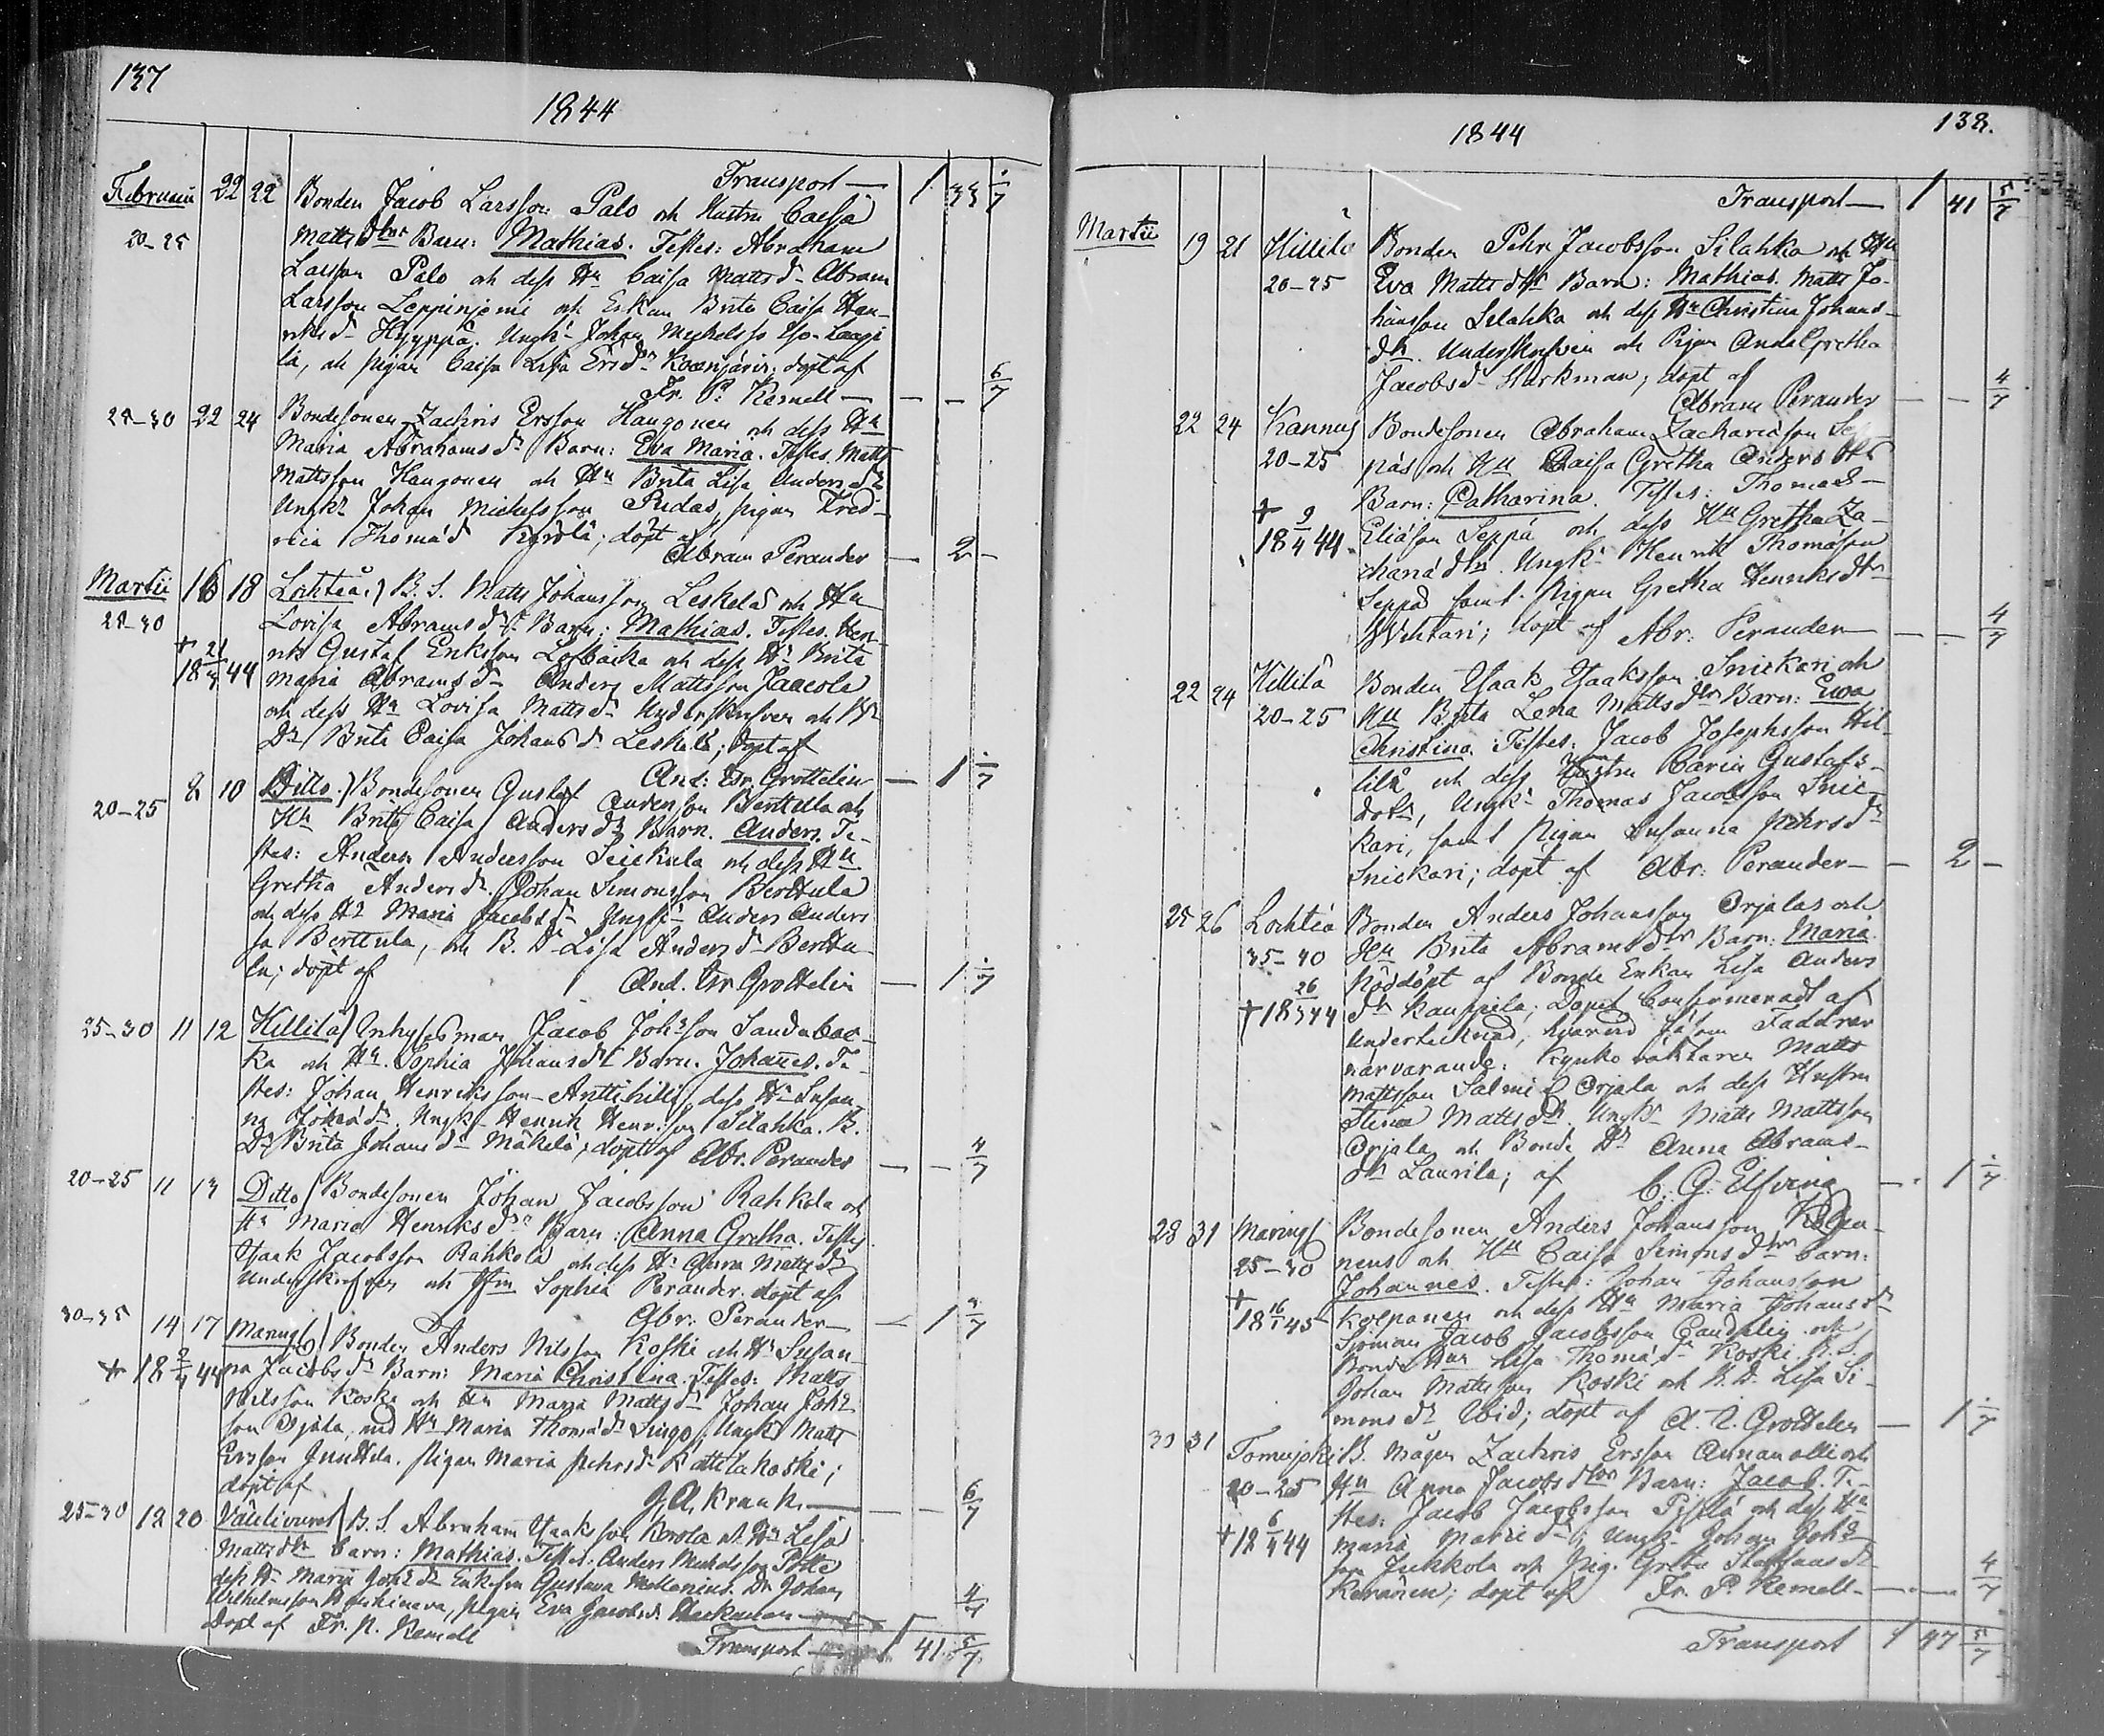 137
1844
Transport — 1 33 1/7
Februarii 22 22 Bonden Jacob Larsson Palo och Hustru Caisa
20-25 Mattsdtr Barn: Mathias. Testes: Abraham
Larsson Palo och dess Hu Caisa Mattsdr Abram
Larsson Leppinjemi och Enkan Brita Caisa Hen-
riksdr Hyyppä. Ungk: Johan
la, och pigan Caisa Lisa Ersdr döpt af
Fr. P. Kemell — — — 6/7
25-30 22 24 Bondesonen Zachris Ersson Haugonen och dess Hu
Maria Abrahamsdr Barn: Eva Maria. Testes. Matts
Mattsson Haugonen och Hu Brita Lisa Andersdr
Ungkr Johan Michelsson Pudas, pigan Fred-
rica Thomäd döpt af
Abram Perander — 2 —
Martii 16 18 Lochteå.) B. S. Matts Johansson Leskelä och Hu
25-30 Lovisa Abramsdr Barn: Mathias. Testes. Hen-
+ 18 21/3 44 rik Gustaf Eriksson Löfbacka och dess Hu Brita
Maria Abramsdr Anders Mattsson Jaacola
och dess Hu Lovisa Mattsdr Underskrifven och
Dr Brita Caisa Johansdr Leskelä; döpt af
And: Grottelin — 1 1/7
20-25 8 10 Ditto.) Bondesonen Gustaf Andersson Berttula och
Hu Brita Caisa Andersdr Barn. Anders. Te-
stes: Anders Andersson och dess Hu
Gretha Andersdr. Johan Simonsson Berttula
och dess Hu Maria Jacobsdr Ungkr Anders Anders
so Berttula, och B. Dr Lisa Andersdr Berttu-
la; döpt af And. Grottelin — 1 1/7
25-30 11 12 Hillilä) Inhysesman Jacob Johsson Sandbac-
ka och Hu. Sophia Johansdr Barn. Johannes. Te-
stes: Johan Henriksson Anttihilli, dess Hu Susan-
na Johsdr. Ungkr Henrik Henrsson Silahka. B.
Dr Brita Johansdr Mäkelä; döpt af Abr. Perander — — 4/7
20-25 11 13 Ditto) Bondesonen Johan Jacobsson Rahkola och
Hu Maria Henriksdr Barn: Anna Gretha. Testes
Isaak Jacobsson Rahkola och dess Hu Anna Mattsdr
Underskrifven och Sophia Perander. döpt af
Abr. Perander — — 1
30-35 14 17 Marings) Bonden Anders Nilsson Koski och Hu Susan-
+ 18 2/4 44 na Jacobsdr Barn: Maria Christina. Testes: Matts
Nilsson Koski och Hu Maria Mattsdr Johan Johs
son med Hu Maria Thomädr Ungkr Matts
Ersson Junttila. Pigan Maria Pehrsdr Kattilakoski;
döpt af J. A. Krank. — — — 6/7
25-30 12 20 B. S. Abraham Isaksson Korola o. Hu Lisa
Mattsdtr barn: Mathias. Testes: Anders Michelsson
dess Hu Maria Johsdr Enkefru Gustava Mellenius. Dr Johan
Wilhelmsson pigan Eva Jacobsdr — — 4/7
döpt af Fr. P. Kemell
Transport — 1 41 5/7
138.
1844
Transport — 1 41 5/7
Martii 19 21 Hillilä Bonden Pehr Jacobsson Silahka och Hu
20-25 Eva Mattsdtr Barn: Mathias. Matts Jo-
hansson Silahka och dess Hu Christina Johans-
dtr. Underskrifven och Pigan Anna Gretha
Jacobsdr Starkman; döpt af
Abram Perander — — 4/7
22 24 Kannus Bondesonen Abraham Zachariasson Sep-
20-25 päs och Hu Caisa Gretha Andersdtr
Barn: Catharina. Testes: Thomas
+ 18 9/4 44. Eliasson Seppä och dess Hu Gretha Za-
chariädtr. Ungkr Henrik Thomasson
Seppä samt Pigan Gretha Henriksdtr
döpt af Abr. Perander — — 4/7
22 24 Hillilä Bonden Isaak Isaaksson Snickari och
20-25 Hu Brita Lena Mattsdtr Barn: Ewa
Christina Testes: Jacob Josephsson Hil-
lilä och dess Hustru Carin Gustafs-
dotr, Ungkr Thomas Jacobsson Snic-
kari, samt Pigan Susanna Pehrsdr
Snickari; döpt af Abr. Perander — — 2 —
25 26 Lochteå Bonden Anders Johansson Orjalas och
35-40 Hu Brita Abramsdtr Barn: Maria.
Nöddöpt af Bonde Enkan Lisa Anders
+ 18 26/3 44 dtr Kauppila; Dopet Confirmeradt af
undertecknad, hvarvid såsom Faddrar
närvarande: Kyrko väktaren Matts
Mattsson Salmi & Orjala och dess Hustru
Stina Mattsdtr. Ungkr Matts Mattsson
Orjala och Bonde Dr Anna Abrams-
dtr Laurila; af C. G. Elfving — 1 1/7
28 31 Marings Bondesonen Anders Johansson Kolpa-
25-30 nens och Hu Caisa Simonsdtr barn:
Johannes. Testes: Johan Johansson
+ 18 16/1 45 Kolpanen och dess Hu Maria Johansdr
Sjöman Jacob Jacobsson och
Bonde Hu Lisa Thomädr Koski. B. S.
Johan Mattsson Koski och B. D. Lisa Si-
monsdr Ibid; döpt af A. U. Grottelin — 1 1/7
30 31 B. Mågen Zachris Ersson Annanolli och
20-25 Hu Anna Jacobsdtr Barn: Jacob. Te-
stes: Jacob Jacobsson och dess Hu
+ 18 6/4 44 Maria Ungkr Johan Johs
son Jukkola och pig. Greta Staffansdr
döpt af Fr. P. Kemell — — — 4/7
Transport 1 47 5/7